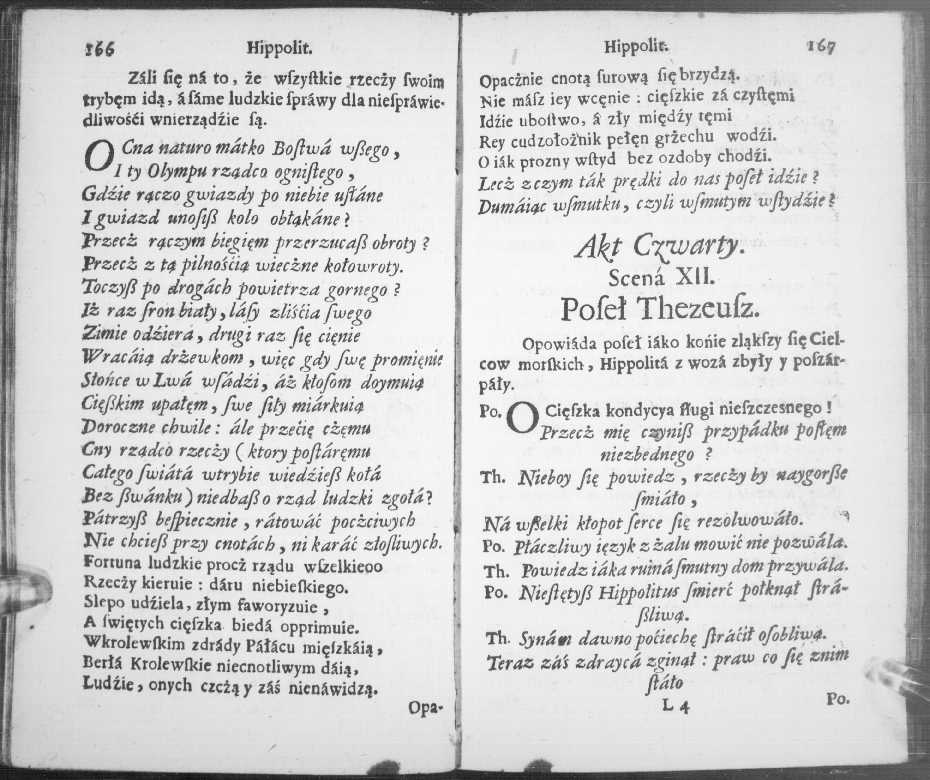 166 Hippolit.
Záli ſię ná to, że wſzyſtkie rzeczy ſwoim
trybęm idą, á ſáme ludzkie ſpráwy dla nieſpráwie-
dliwośći wnierządźie ſą.
OCna naturo mátko Boſtwá wßego,
I ty Olympu rządco ogniſtego,
Gdźie rączo gwiazdy po niebie uſtáne
I gwiazd unoſiß kolo obłąkáne?
Przecż rączym biegięm przerzucaß obroty?
Przecż z tą pilnośćią wiecżne kołowroty.
Toczyß po drogách powietrza gornego?
Iż raz ſron biały, láſy zliśćia ſwego
Zimie odźiera, drugi raz ſię cięnie
Wracáią drżewkom, więc gdy ſwę promięnie
Słońce w Lwá wſádźi, áż kłoſom doymuią
Cięßkim upałęm, ſwe ſiły miárkuią
Doroczne chwile: ále przećię cżęmu
Cny rządco rzecży (ktory poſtáręmu
Całego ſwiátá wtrybie wiedźieß kołá
Bez ßwánku) niedbaß o rząd ludzki zgołá?
Pátrzyß beſpiecznie, rátowáć pocżciwych
Nie chcieß przy cnotách, ni karáć złoſliwych.
Fortuna ludzkie procż rządu wſzelkieoo
Rzecży kieruie: dáru niebieſkiego.
Slepo udźiela, złym faworyzuie,
A ſwiętych cięſzka biedá opprimuie.
Wkrolewſkim zdrády Páłácu mięſzkáią,
Berłá Krolewſkie niecnotliwym dáią,
Ludźie, onych czcżą y záś nienáwidzą.
Opa-
Hippolit. 167
Opacżnie cnotą ſurową ſię brzydzą.
Nie máſz iey wcęnie: cięſzkie zá czyſtęmi
Idźie uboſtwo, á zły międźy tęmi
Rey cudzołożnik pełęn grżechu wodźi.
O iák prozny wſtyd bez ozdoby chodźi.
Lecż z czym ták prędki do nas poſeł idźie?
Dumáiąc wſmutku, czyli wſmutym wſtydźie?
Akt Czwarty.
Scená XII.
Poſeł Thezeuſz.
Opowiáda poſeł iáko końie zląkſzy ſię Ciel-
cow morſkich, Hippolitá z wozá zbyły y poſzár-
páły.
Po. OCięſzka kondycya ſługi nieſzczesnego!
Przecż mię czyniß przypádku poſtęm
niezbednego?
Th. Nieboy ſię powiedz, rzecży by naygorße
ſmiáło,
Ná wßelki kłopot ſerce ſię rezolwowáło.
Po. Płáczliwy ięzyk z żalu mowić nie pozwála.
Th. Powiedz iáka ruiná ſmutny dom przywála.
Po. Nieſtętyß Hippolitus ſmierć połknął ſtrá-
ßliwą.
Th. Synám dawno poćiechę ſtráćił oſobliwą.
Teraz záś zdraycá zginął: praw co ſię znim
ſtáło
L 4 Po.